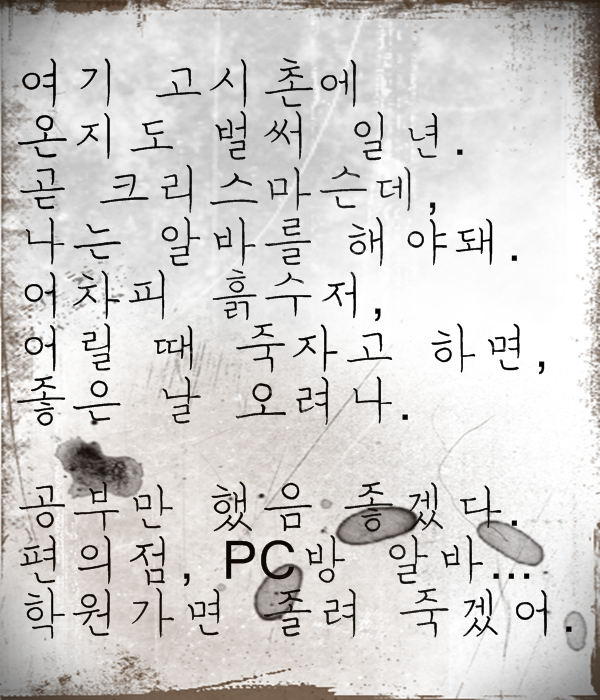 여기 고시촌에
온지도 벌써 일년.
곧 크리스마슨데,
나는 알바를 해야돼.
어차피 흙수저,
어릴때 죽자고 하면,
좋은 날 오려나.
공부만 했음 좋겠다.
편의점, PC방 알바...
학원가면 졸려 죽겠어.